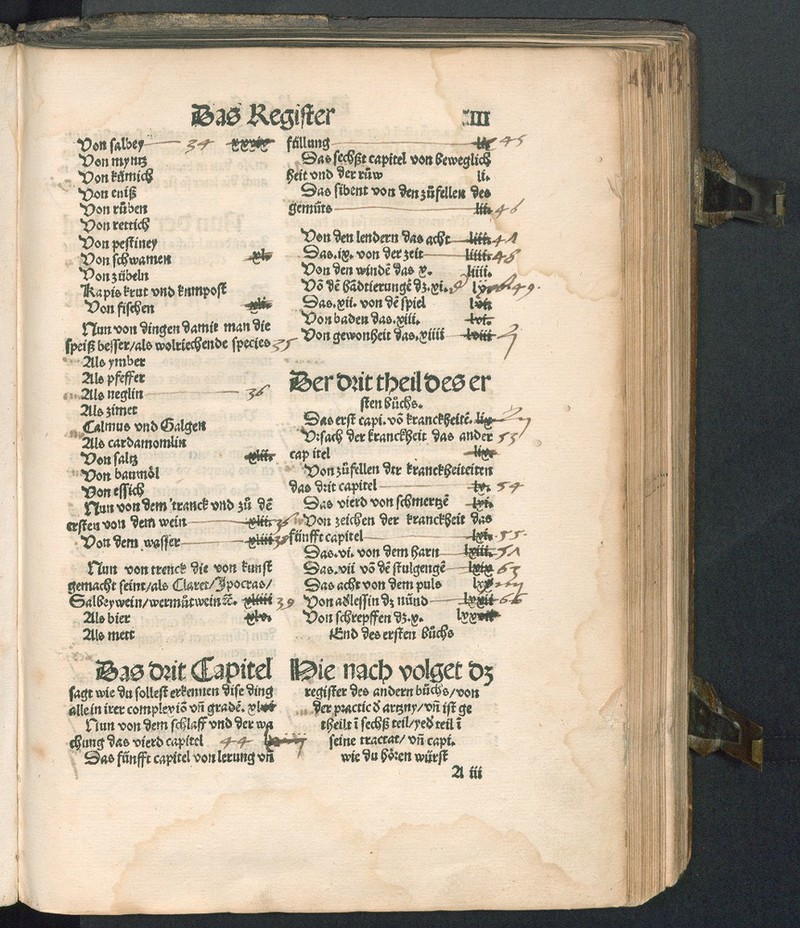 Das Register
III
Von salbey 34 xxxix
Von myntz
Von kümich
Von eniß
Von rüben
Von rettich
Von pestiney
Von schwamen xl.
Von zübeln
Kapis krut vnd kumpost
Von fischen xli.
Nun von dingen damit man die
speiß besser/als wolriechende species 35
Als ymber
Als pfeffer
Als neglin 36
Als zimet
Calmus vnd Galgen
Als cardamomlin
Von saltz xlii.
Von baumöl
Von essich
Nun von dem tranck vnd zů dē
ersten von dem wein xliii 36
Von dem wasser xliii 38
Nun von trenck die von kunst
gemacht seint/als Claret/Ipocras/
Salbeywein/wermůtwein ⁊c. xliiii 39
Als bier xlv.
Als mett
Das drit Capitel
sagt wie du sollest erkennen dise ding
alle in irer complexiō vñ gradē.
Nun von dem schlaff vnd der wa
chung das vierd capitel 44
Das fünfft capitel von lerung vñ
füllung 45
Das sechßt capitel von beweglich
heit vnd der rüw li.
Das sibent von den zůfellen des
gemůts lii. 46
Von den lendern das acht liii.
Das .ix. von der zeit liiii. 48
Von den windē das x. liiii.
Vō dē hādtierungē dz .xi. 49.
Das .xii. von dē spiel
Von baden das .xiii. lvi.
Von gewonheit das .xiiii lviii
Der drit theil des er
sten bůchs.
Das erst capi. vō kranckheitē. lix
Vrsach der kranckheit das ander 53
cap itel
Von zůfellen der kranckheiteiten
das drit capitel 54
Das vierd von schmertzē
Von zeichen der kranckheit das
fünfft capitel 55.
Das .vi. von dem harn lxiii.
Das .vii vō dē stulgengē lxix 63
Das acht von dem puls
Von aßlessin dz nünd lxxii 66
Von schrepffen dz .x.
End des ersten bůchs
Hie nach volget dz
register des andern bůchs/von
der practic d artzny/vñ ist ge
theilt ī sechß teil/yed teil ī
seine tractat/vñ capi.
wie du hören würst
A iii